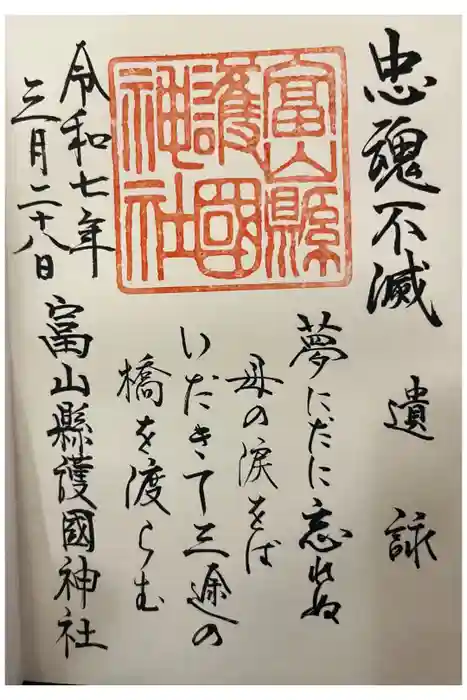 忠魂不滅
遺詠
夢にだに忘れぬ
母の涙をば
いだきて三途の
橋を渡らむ
富山縣
護國
神社
令和七年
三月二十八日
富山縣護國神社